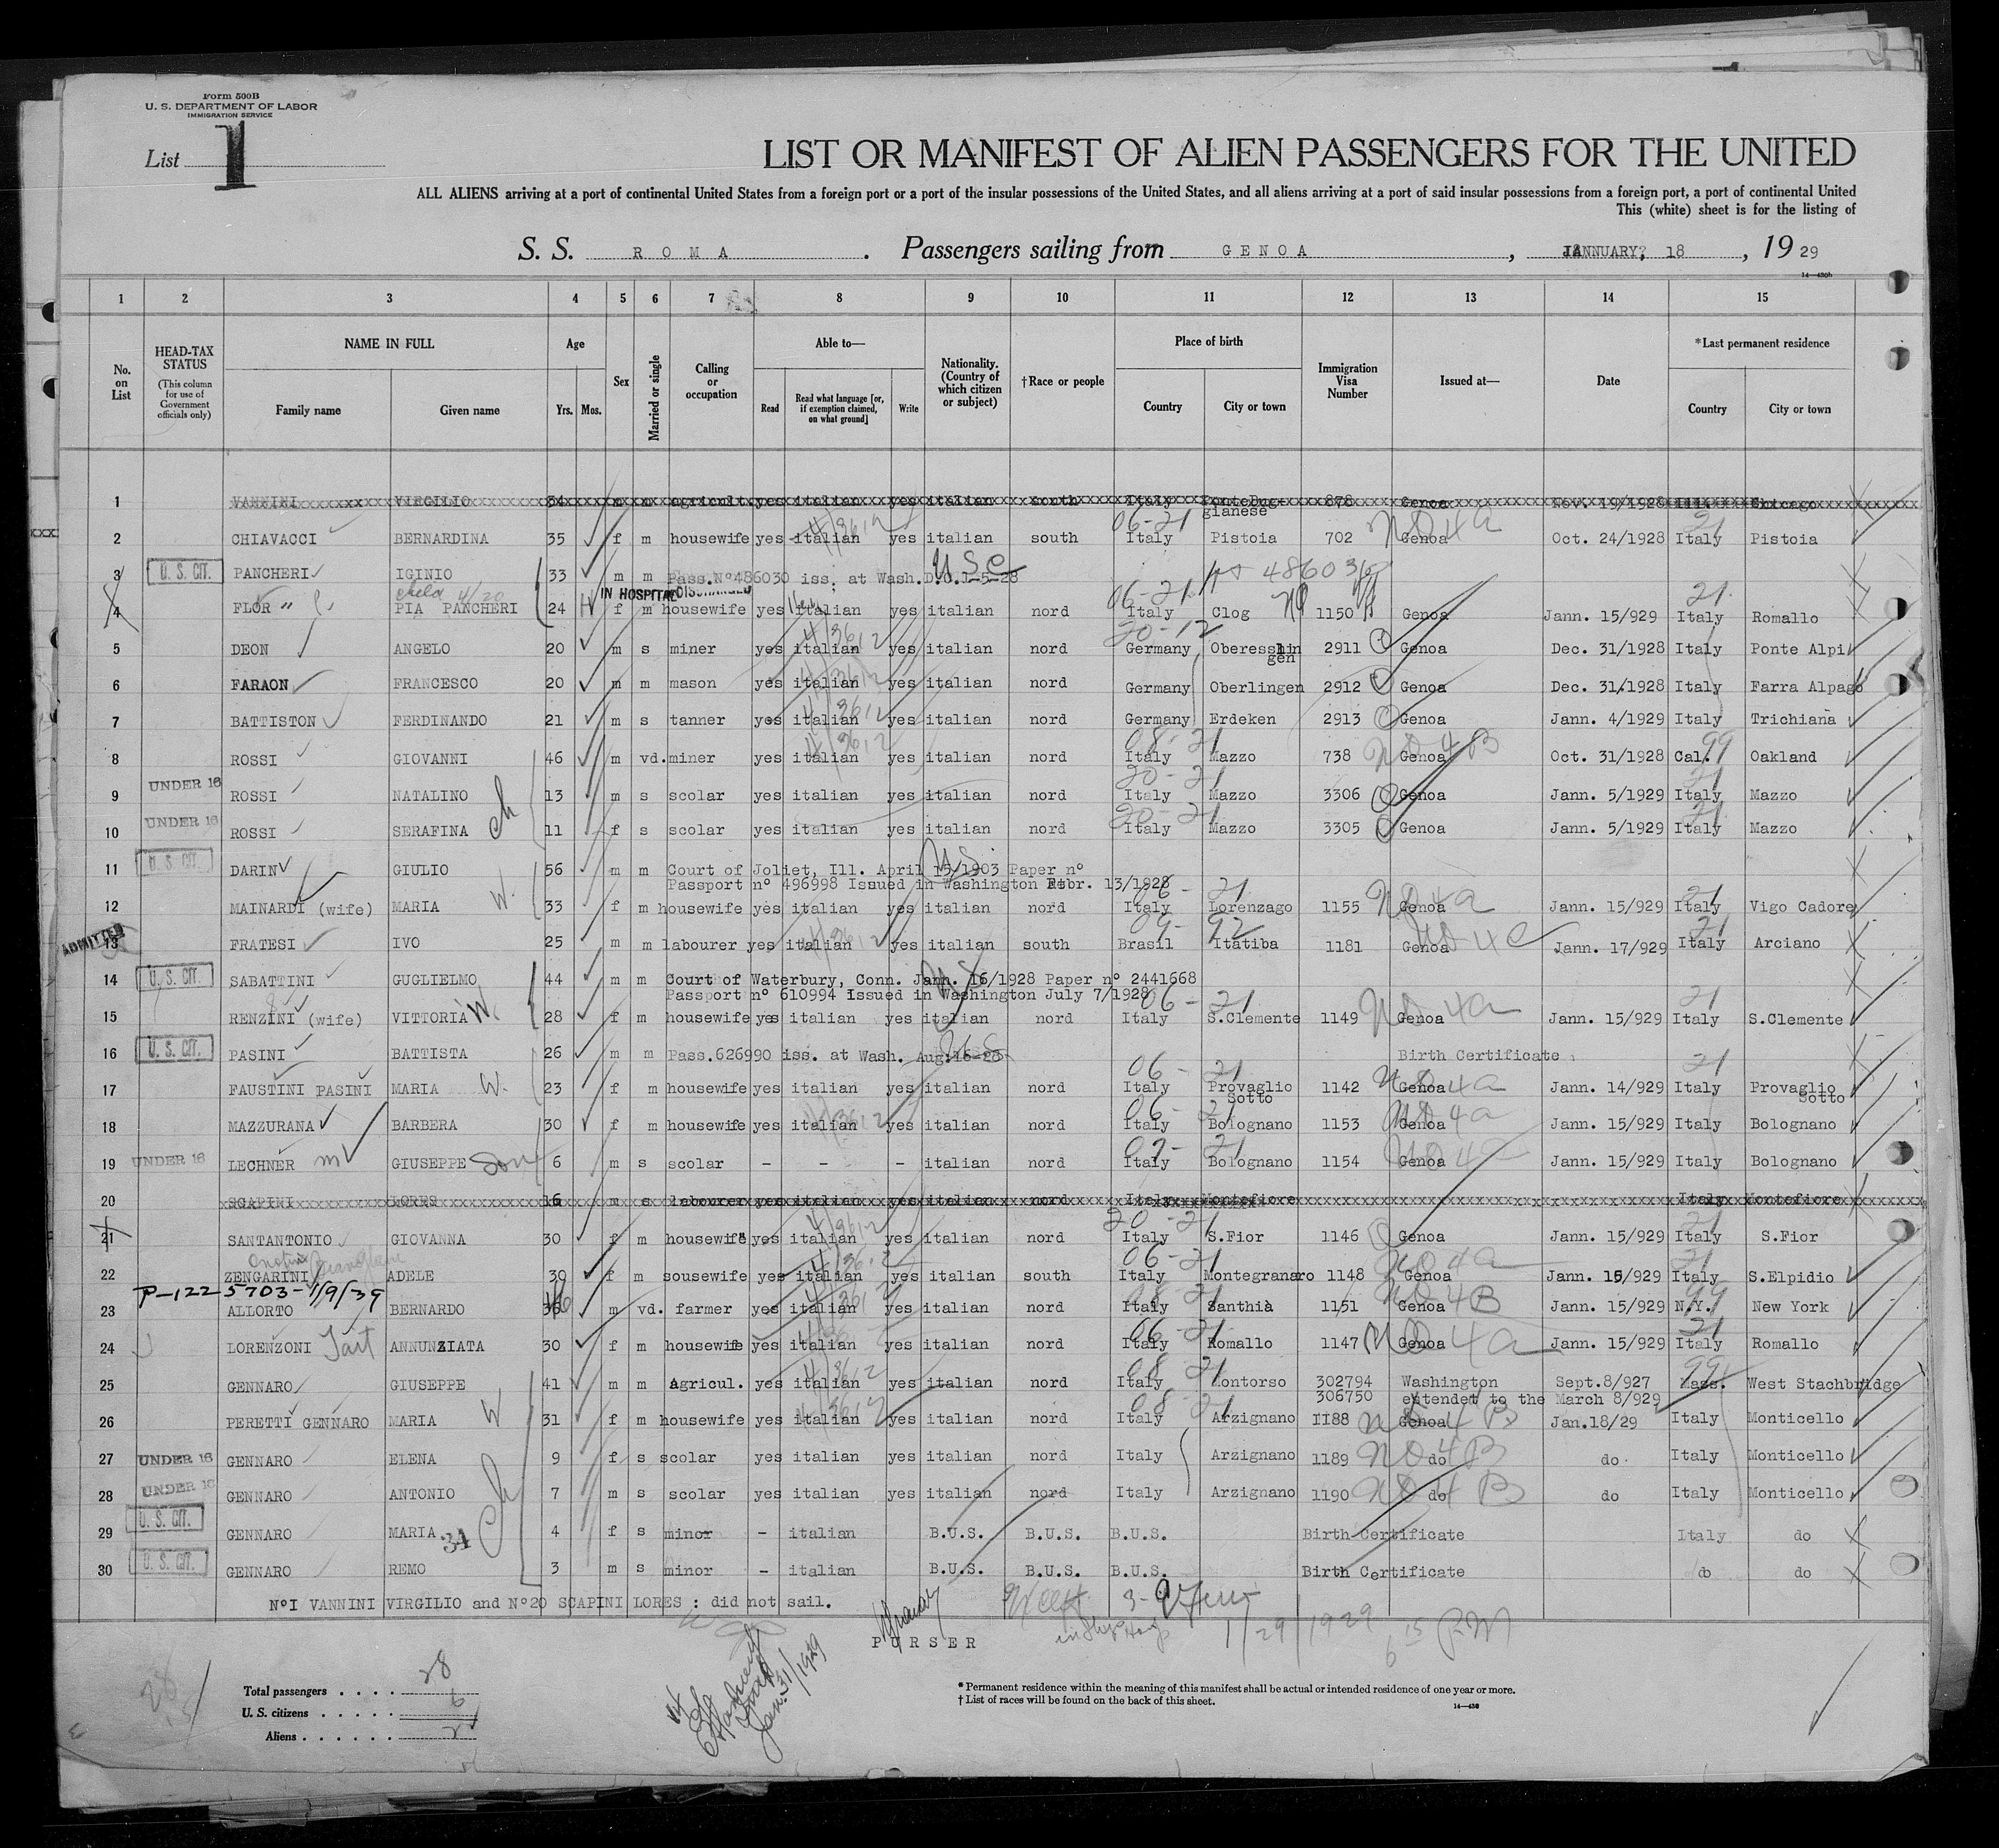 Form 500B
U. S. DEPARTMENT OF LABOR
IMMIGRATION SERVICE
List 1
LIST OR MANIFEST OF ALIEN PASSENGERS FOR THE UNITED
ALL ALIENS arriving at a port of continental United States from a foreign port or a port of the insular possessions of the United States, and all aliens arriving at a port of said insular possessions from a foreign port, a port of continental United
This (white) sheet is for the listing of
S. S. ROMA. Passengers sailing from GENOA, JANNUARY, 18, 1929
14—430b
1 2 3 4 5 6 7 8 9 10 11 12 13 14 15
No. on List
HEAD-TAX STATUS (This column for use of Government officials only)
NAME IN FULL Family name Given name
Age Yrs. Mos.
Sex
Married or single
Calling or occupation
Able to— Read Read what language [or, if exemption claimed, on what ground] Write
Nationality. (Country of which citizen or subject)
†Race or people
Place of birth Country City or town
Immigration Visa Number
Issued at—
Date
*Last permanent residence Country City or town
1 VANNINI VIRGILIO 34 m m agricult. yes italian yes italian south Italy PonteBuggianese 878 Genoa Nov. 19/1928 Ill. Chicago
2 CHIAVACCI BERNARDINA 35 f m housewife yes italian yes italian south 06-21 Italy Pistoia 702 Genoa NO 4a Oct. 24/1928 21 Italy Pistoia
3 U. S. CIT. PANCHERI IGINIO 33 m m Pass.N°486030 iss. at Wash.D.C.1-5-28 USC
4 FLOR " PIA PANCHERI 24 IN HOSPITAL DISCHARGED f m housewife yes italian yes italian nord 06-21 Italy Clog 1150 Genoa Jann. 15/929 21 Italy Romallo
5 DEON ANGELO 20 m s miner yes italian yes italian nord 20-12 Germany Oberesslingen 2911 Genoa Dec. 31/1928 Italy Ponte Alpi
6 FARAON FRANCESCO 20 m m mason yes italian yes italian nord Germany Oberlingen 2912 Genoa Dec. 31/1928 Italy Farra Alpago
7 BATTISTON FERDINANDO 21 m s tanner yes italian yes italian nord Germany Erdeken 2913 Genoa Jann. 4/1929 Italy Trichiana
8 ROSSI GIOVANNI 46 m vd. miner yes italian yes italian nord 08-21 Italy Mazzo 738 Genoa NO 4B Oct. 31/1928 99 Cal. Oakland
9 UNDER 16 ROSSI NATALINO 13 m s scolar yes italian yes italian nord 20-21 Italy Mazzo 3306 Genoa Jann. 5/1929 21 Italy Mazzo
10 UNDER 16 ROSSI SERAFINA ch 11 f s scolar yes italian yes italian nord 20-21 Italy Mazzo 3305 Genoa Jann. 5/1929 21 Italy Mazzo
11 U. S. CIT. DARIN GIULIO 56 m m Court of Joliet, Ill. April 15/1903 Paper n°
Passport n° 496998 Issued in Washington Febr. 13/1928
12 MAINARDI (wife) MARIA W. 33 f m housewife yes italian yes italian nord 06-21 Italy Lorenzago 1155 Genoa NO 4a Jann. 15/929 21 Italy Vigo Cadore
ADMITTED
13 FRATESI IVO 25 m m labourer yes italian yes italian south 09-92 Brasil Itatiba 1181 Genoa NO 4C Jann. 17/929 21 Italy Arciano
14 U. S. CIT. SABATTINI GUGLIELMO 44 m m Court of Waterbury, Conn. Jann. 16/1928 Paper n° 2441668
Passport n° 610994 Issued in Washington July 7/1928
15 RENZINI (wife) VITTORIA W. 28 f m housewife yes italian yes italian nord 06-21 Italy S.Clemente 1149 Genoa NO 4a Jann. 15/929 21 Italy S.Clemente
16 U. S. CIT. PASINI BATTISTA 26 m m Pass.626990 iss. at Wash. Aug.16-28 Birth Certificate
17 FAUSTINI PASINI MARIA W. 23 f m housewife yes italian yes italian nord 06-21 Italy Provaglio Sotto 1142 Genoa NO 4a Jann. 14/929 21 Italy Provaglio Sotto
18 MAZZURANA BARBERA 30 f m housewife yes italian yes italian nord 06-21 Italy Bolognano 1153 Genoa NO 4a Jann. 15/929 Italy Bolognano
19 UNDER 16 LECHNER GIUSEPPE Son 6 m s scolar - - - italian nord Italy Bolognano 1154 Genoa Jann. 15/929 Italy Bolognano
20 SCAPINI LORES 16 m s labourer yes italian yes italian nord Italy Montefiore Italy Montefiore
21 SANTANTONIO GIOVANNA 30 f m housewife yes italian yes italian nord 20-21 Italy S.Fior 1146 Genoa Jann. 15/929 21 Italy S.Fior
22 ZENGARINI ADELE 30 f m sousewife yes italian yes italian south 06-21 Italy Montegranaro 1148 Genoa NO 4a Jann. 15/929 21 Italy S.Elpidio
P-1225703-1/9/39
23 ALLORTO BERNARDO 36 m vd. farmer yes italian yes italian nord 08-21 Italy Santhià 1151 Genoa NO 4B Jann. 15/929 99 N.Y. New York
24 LORENZONI ANNUNZIATA 30 f m housewife yes italian yes italian nord 06-21 Italy Romallo 1147 Genoa NO 4a Jann. 15/929 21 Italy Romallo
25 GENNARO GIUSEPPE 41 m m Agricul. yes italian yes italian nord 08 21 Italy Montorso 302794 Washington Sept.8/927 99 Mass. West Stachbridge
306750 extended to the March 8/929
26 PERETTI GENNARO MARIA W 31 f m housewife yes italian yes italian nord 08-21 Italy Arzignano II88 Genoa NO 4B Jan.18/29 Italy Monticello
27 UNDER 16 GENNARO ELENA 9 f s scolar yes italian yes italian nord Italy Arzignano 1189 do NO 4B do Italy Monticello
28 UNDER 16 GENNARO ANTONIO ch 7 m s scolar yes italian yes italian nord Italy Arzignano 1190 do NO 4B do Italy Monticello
29 U. S. CIT. GENNARO MARIA 34 4 f s minor - italian B.U.S. B.U.S. B.U.S. Birth Certificate Italy do
30 U. S. CIT. GENNARO REMO 3 m s minor - italian B.U.S. B.U.S. B.U.S. Birth Certificate do do
N°I VANNINI VIRGILIO and N°20 SCAPINI LORES : did not sail.
PURSER
1/29/1929 6 15 P.M
Jan. 31/1929
Total passengers . . . . 28
U. S. citizens . . . . . 6
Aliens . . . . . .
* Permanent residence within the meaning of this manifest shall be actual or intended residence of one year or more.
† List of races will be found on the back of this sheet.
14—430